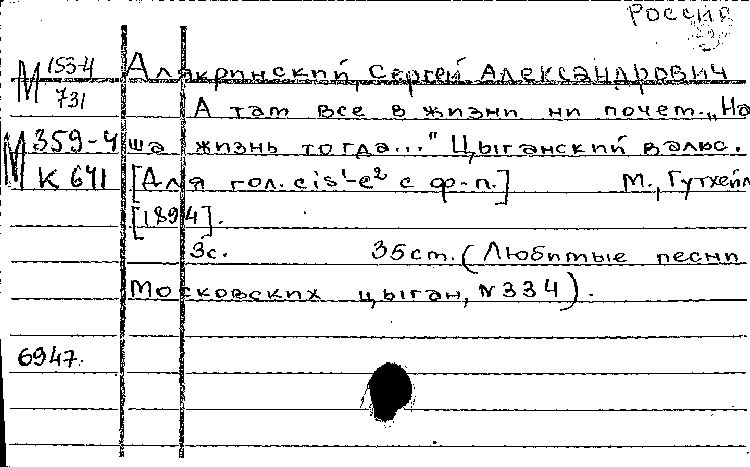 Россия
М 153-4
731
Алякринский, Сергей Александрович
А там все в жизни ни почем. „На
М 359-4
ша жизнь тогда..." Цыганский вальс.
К 641
[Для гол. cis¹-e² с ф-п.] М., Гутхейл
[1894].
3с. 35ст. (Любимые песни
Московских цыган, N 334).
6947.